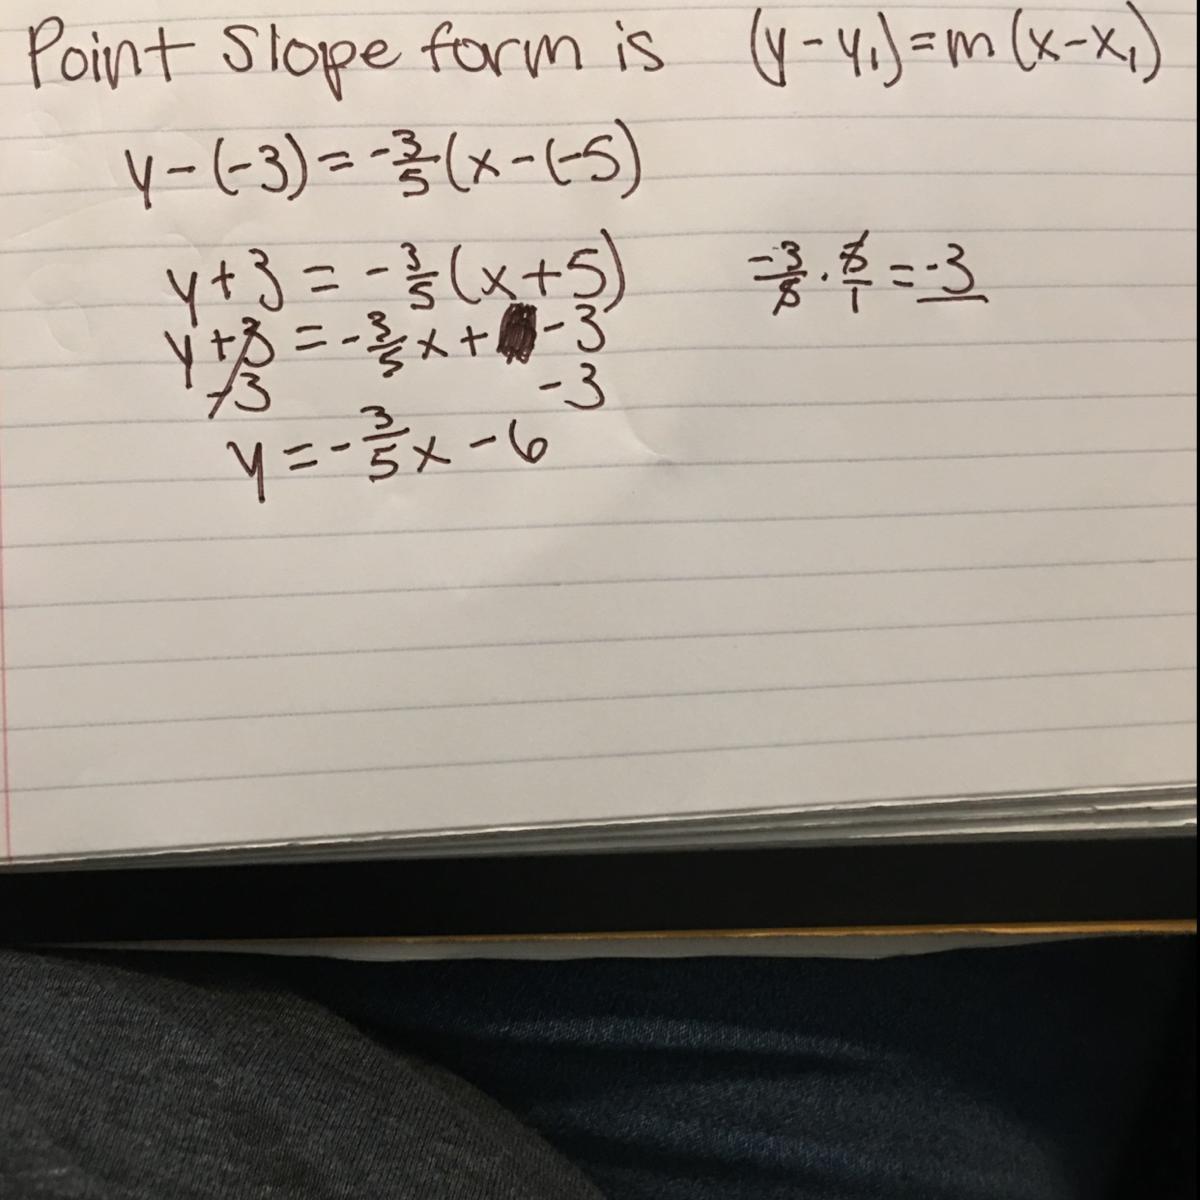 Point Slope form is (y-y₁)=m(x-x₁)
y-(-3)=-3/5(x-(-5)
y+3=-3/5(x+5) -3/5·5/1=-3
y+3=-3/5x+ -3
-3 -3
y=-3/5x-6